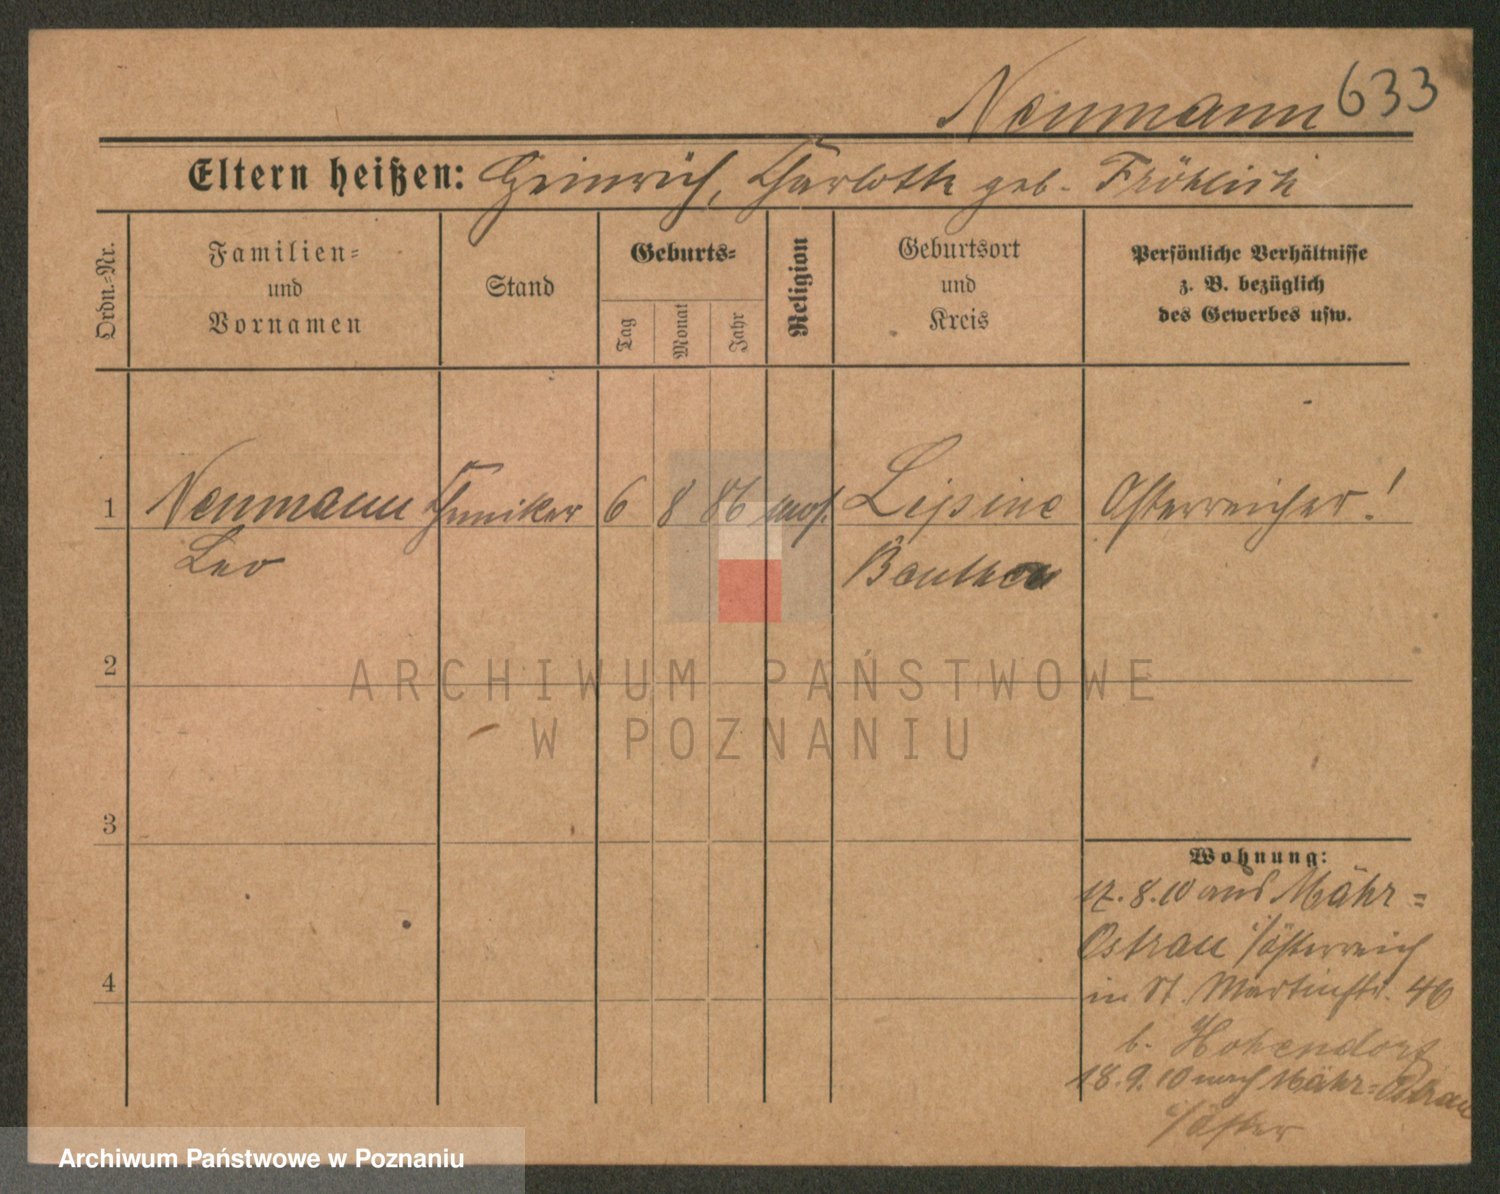 Neumann 633
Eltern heißen: Heinrich, Charlotte geb. Fröhlich
Ordn.-Nr.
Familien-
und
Vornamen
Stand
Geburts-
Tag
Monat
Jahr
Religion
Geburtsort
und
Kreis
Persönliche Verhältnisse
z. B. bezüglich
des Gewerbes usw.
1 Neumann Chemiker 6 8 86 mos. Lipine Österreicher!
Leo Beuthen
2
ARCHIWUM PAŃSTWOWE
W POZNANIU
3
Wohnung:
17.8.10 aus Mähr-
Ostrau i/Österreich
4
in St. Martinstr. 46
b. Hohendorf
18.9.10 nach Mähr-Ostrau
i/Öster
Archiwum Państwowe w Poznaniu